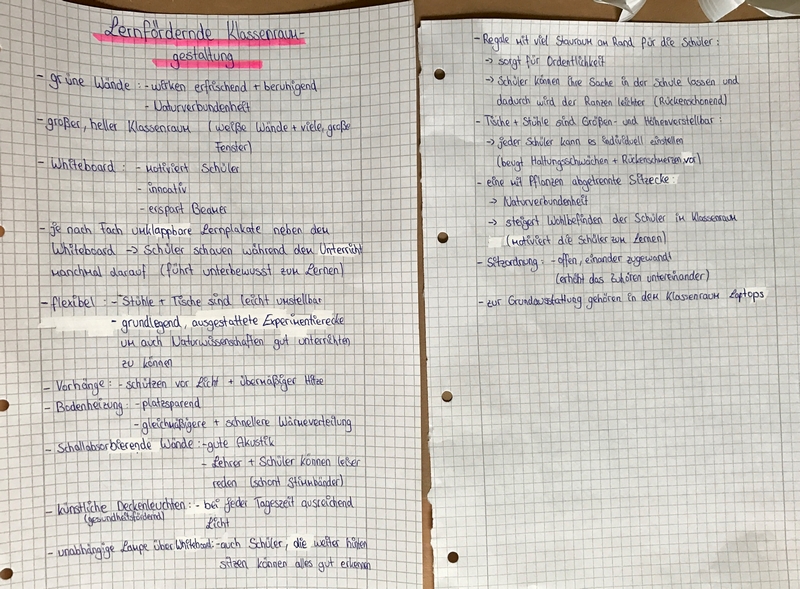 Lernfördernde Klassenraum-
gestaltung
- grüne Wände : - wirken erfrischend + beruhigend
- Naturverbundenheit
- großer, heller Klassenraum (weiße Wände + viele, große
Fenster)
- Whiteboard : - motiviert Schüler
- innoativ
- erspart Beamer
- je nach Fach umklappbare Lernplakate neben dem
Whiteboard → Schüler schauen während dem Unterricht
manchmal darauf (führt unterbewusst zum Lernen)
- flexibel : - Stühle + Tische sind leicht umstellbar
- grundlegend, ausgestattete Experimentierecke
um auch Naturwissenschaften gut unterrichten
zu können
- Vorhänge : - schützen vor Licht + übermäßiger Hitze
- Bodenheizung : - platzsparend
- gleichmäßigere + schnellere Wärmeverteilung
- Schallabsorbierende Wände : - gute Akustik
- Lehrer + Schüler können leiser
reden (schont Stimmbänder)
- künstliche Deckenleuchten : - bei jeder Tageszeit ausreichend
(gesundheitsfördernd) Licht
- unabhängige Lampe über Whiteboard : - auch Schüler, die weiter hinten
sitzen können alles gut erkennen
- Regale mit viel Stauraum am Rand für die Schüler :
→ sorgt für Ordentlichkeit
→ Schüler können ihre Sache in der Schule lassen und
dadurch wird der Ranzen leichter (Rückenschonend)
- Tische + Stühle sind Größen- und Höhenverstellbar :
→ jeder Schüler kann es individuell einstellen
(beugt Haltungsschwächen + Rückenschmerzen vor)
- eine mit Pflanzen abgetrennte Sitzecke :
→ Naturverbundenheit
→ steigert Wohlbefinden der Schüler im Klassenraum
(motiviert die Schüler zum Lernen)
- Sitzordnung : - offen, einander zugewandt
(erhöht das Zuhören untereinander)
- zur Grundausstattung gehören in dem Klassenraum Laptops